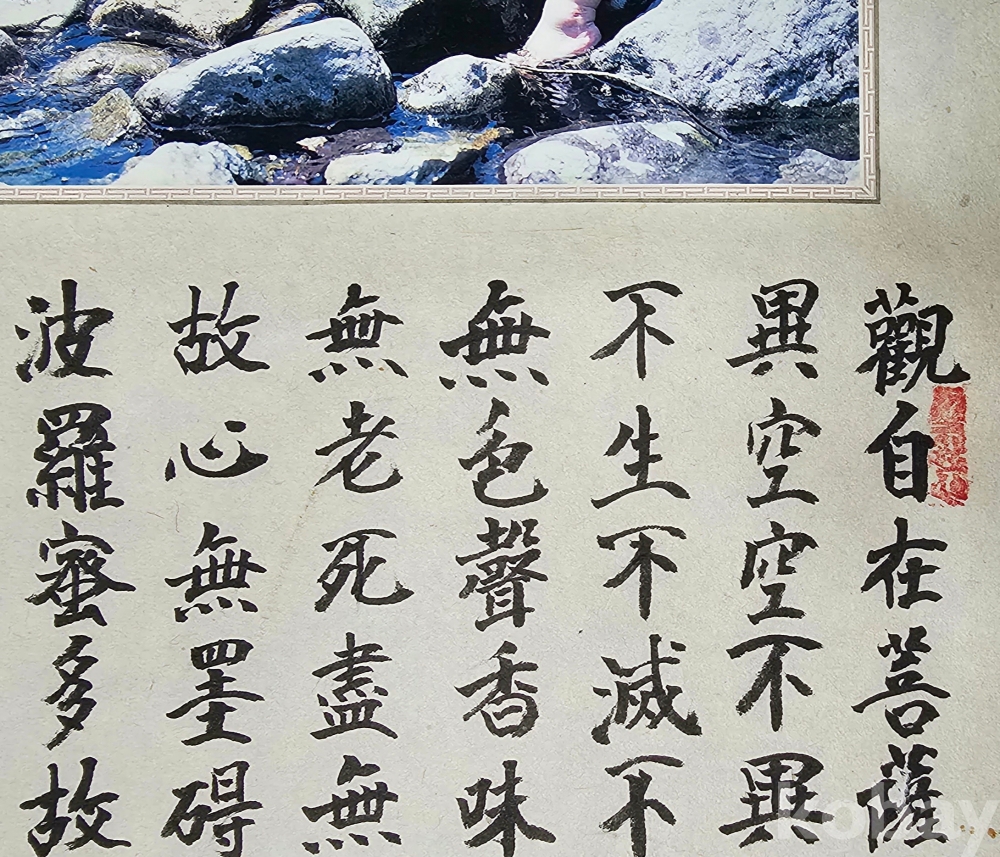 觀自在菩薩
異空空不異
不生不滅不
無色聲香味
無老死盡無
故心無罣碍
波羅蜜多故
kobay